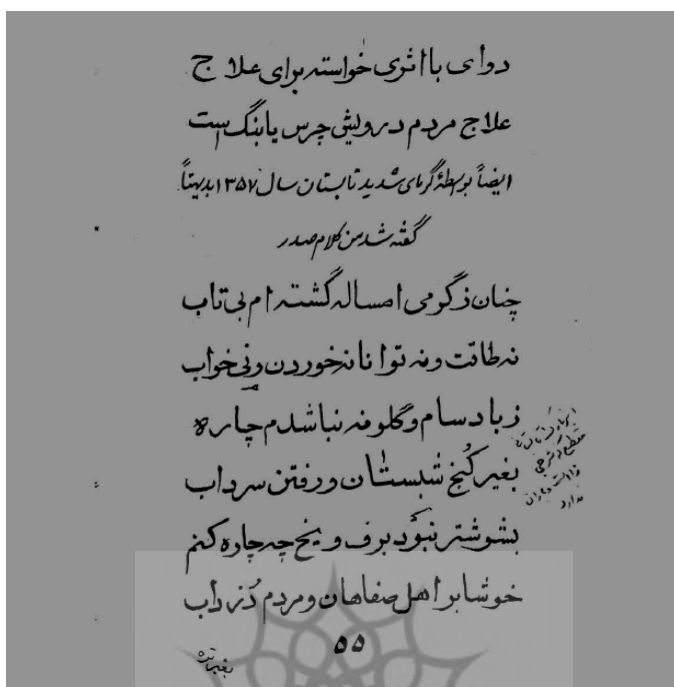 دوای با اثری خواسته برای علاج
علاج مردم درویش چرس یا بنگ است
ایضاً بواسطهٔ گرمای شدید تابستان سال ۱۳۵۷ بدیهتاً
گفته شد من کلام صدر
چنان ز گرمی امساله گشته ام بی تاب
نه طاقت و نه توانا نه خوردن و نی خواب
ز باد سام و گلو فه نباشدم چاره
بغیر کُنج شبستان و رفتن سرداب
بشوشتر نبوَد برف و یخ چه چاره کنم
خوشا بر اهل صفاهان و مردم دُزداب
۵۵